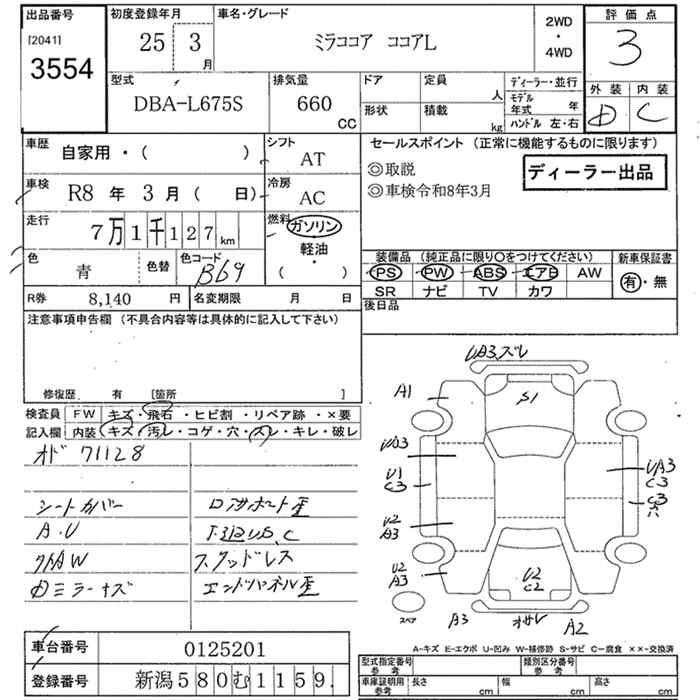 出品番号
[2041]
3554
初度登録年月
25 3
月
車名・グレード
ミラココア ココアL
2WD
・
4WD
評価点
3
外装 内装
D C
型式
DBA-L675S
排気量
660
CC
ドア
定員
人
形状
積載
kg
ディーラー・並行
モデル
年式 年
ハンドル 左・右
車歴
自家用・( )
シフト
AT
車検
R8 年 3 月( 日)
冷房
AC
走行
7万1千127km
燃料
ガソリン
軽油
・
( )
色
青
色替
色コード
B69
R券 8,140 円
名変期限 月 日
セールスポイント (正常に機能するものに限ります)
◎取説
◎車検令和8年3月
ディーラー出品
装備品 (純正品に限り〇をつけてください)
PS PW ABS エアB AW
SR ナビ TV カワ
新車保証書
有・無
後日品
注意事項申告欄 (不具合内容等は具体的に記入して下さい)
修復歴 有 [箇所 ]
検査員
記入欄
FW キズ・飛石・ヒビ割・リペア跡・×要
内装 キズ・汚レ・コゲ・穴・スレ・キレ・破レ
オド 71128
シートカバー
A.U
社外AW
Dミラーキズ
ロアサポート歪
下廻りUS.C
スタッドレス
エンドパネル歪
UA3ズレ
A1
S1
UA3
U1
C3
U2
A3
U2
A3
UA3
C3
C3
穴
U2
C2
スペア
A3
オサレ
A2
A-キズ E-エクボ U-凹み W-補修跡 S-サビ C-腐食 ××-交換済
車台番号 0125201
登録番号 新潟580む1159.
型式指定番号
参考
類別区分番号
参考
車庫証明用
参考
長さ cm
幅 cm
高さ cm